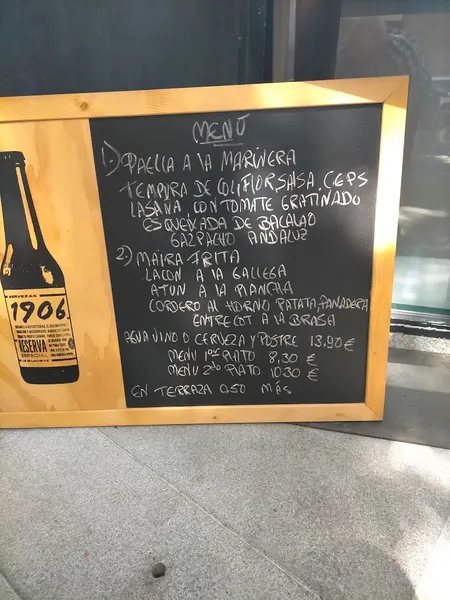 MENÚ
1) PAELLA A LA MARIÑERA
TEMPURA DE COLIFLOR SALSA.CEPS
LASAÑA CON TOMATE GRATINADO
ESQUEIXADA DE BACALAO
GAZPACHO ANDALUZ
2) MAIRA FRITA
LACON A LA GALLEGA
ATUN A LA PLANCHA
CORDERO AL HORNO PATATA,PANADERA
ENTRECOT A LA BRASA
AGUA VINO O CERVEZA Y POSTRE 13,90€
MENU 1er PLATO 8,30 €
MENU 2ndo PLATO 10.30 €
EN TERRAZA 0.50 MÁS
CERVEZAS
1906
RESERVA
ESPECIAL